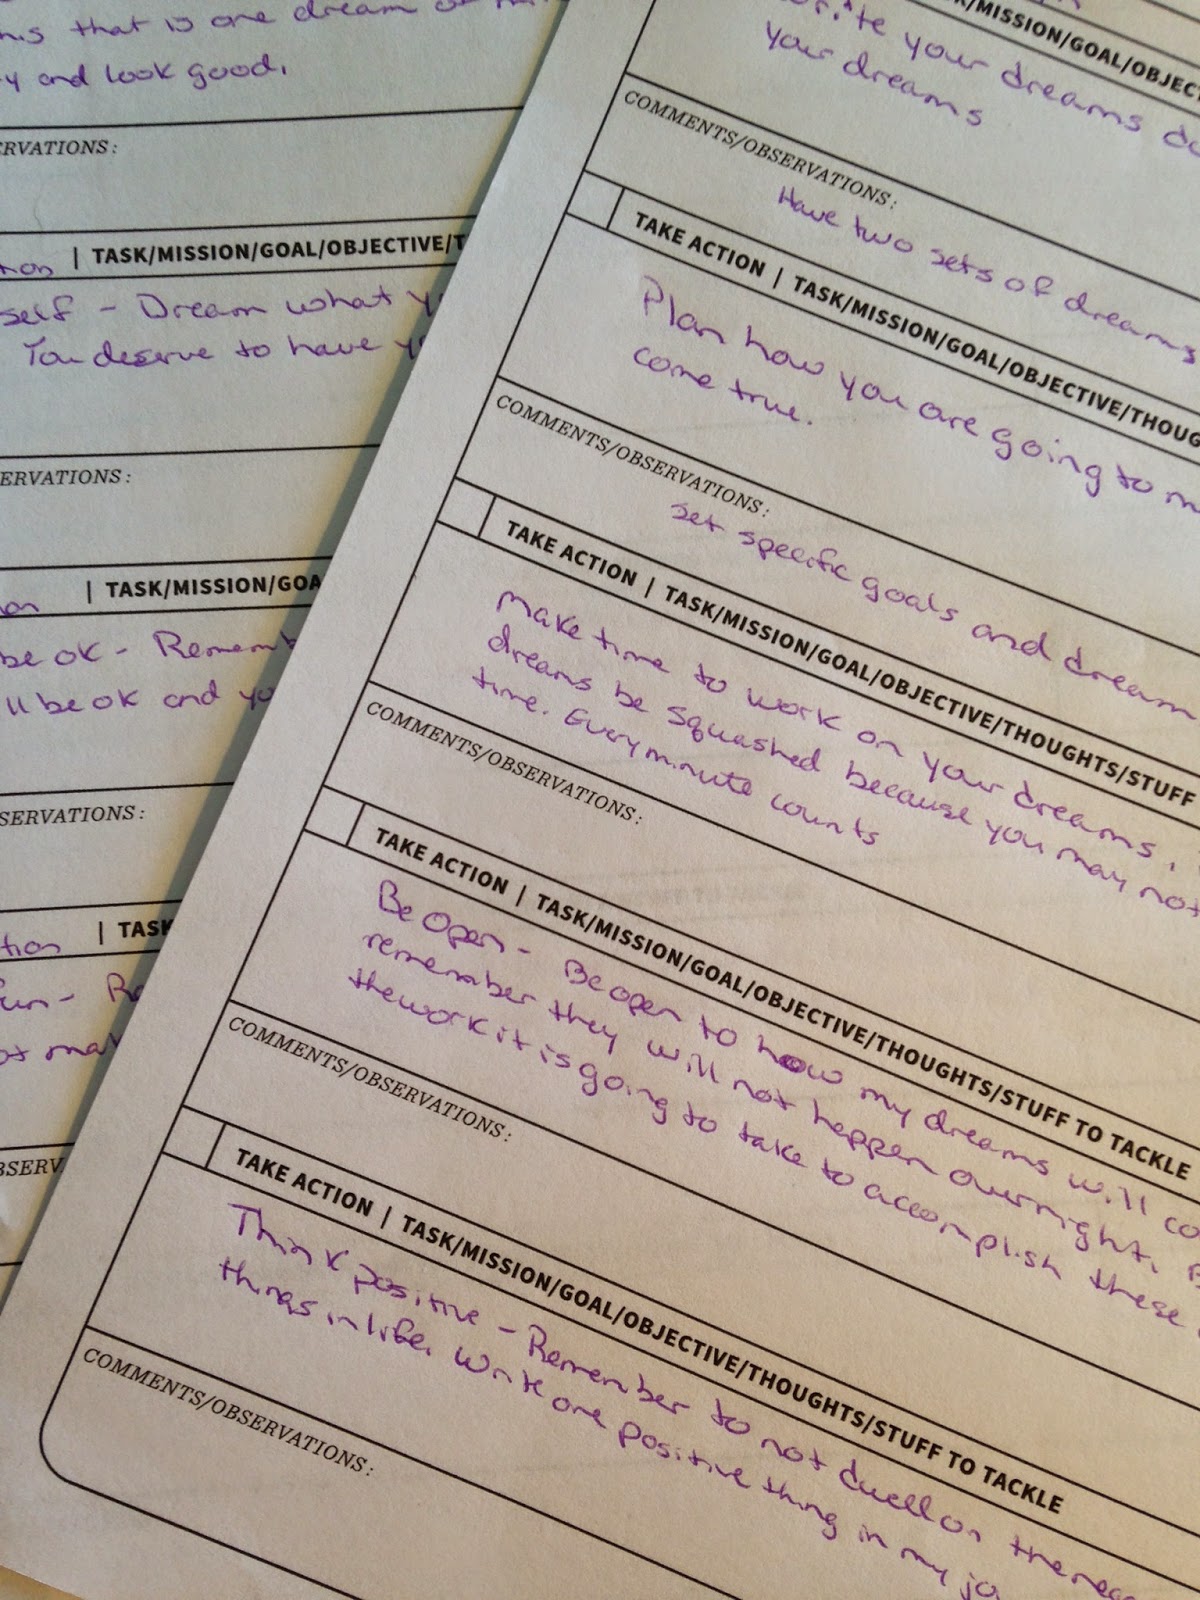 his that is one dream of
y and look good.
ERVATIONS:
| TASK/MISSION/GOAL/OBJECTIVE/T
self - Dream what y
You deserve to have y
ERVATIONS:
| TASK/MISSION/GOA
be ok - Rememb
'll be ok and yo
SERVATIONS:
tion | TASK
fun - Re
ot mat
BSERV
K/MISSION/GOAL/OBJECT
write your dreams do
your dreams
COMMENTS/OBSERVATIONS:
Have two sets of dreams
TAKE ACTION | TASK/MISSION/GOAL/OBJECTIVE/THOUG
Plan how you are going to m
come true.
COMMENTS/OBSERVATIONS:
Set specific goals and dream
TAKE ACTION | TASK/MISSION/GOAL/OBJECTIVE/THOUGHTS/STUFF
Make time to work on your dreams,
dreams be squashed because you may not
time. Every minute counts
COMMENTS/OBSERVATIONS:
TAKE ACTION | TASK/MISSION/GOAL/OBJECTIVE/THOUGHTS/STUFF TO TACKLE
Be Open - Be open to how my dreams will co
remember they will not happen overnight.
the work it is going to take to accomplish these
COMMENTS/OBSERVATIONS:
TAKE ACTION | TASK/MISSION/GOAL/OBJECTIVE/THOUGHTS/STUFF TO TACKLE
Think positive - Remember to not dwell on the neg
things in life. Write one positive thing in my jo
COMMENTS/OBSERVATIONS: